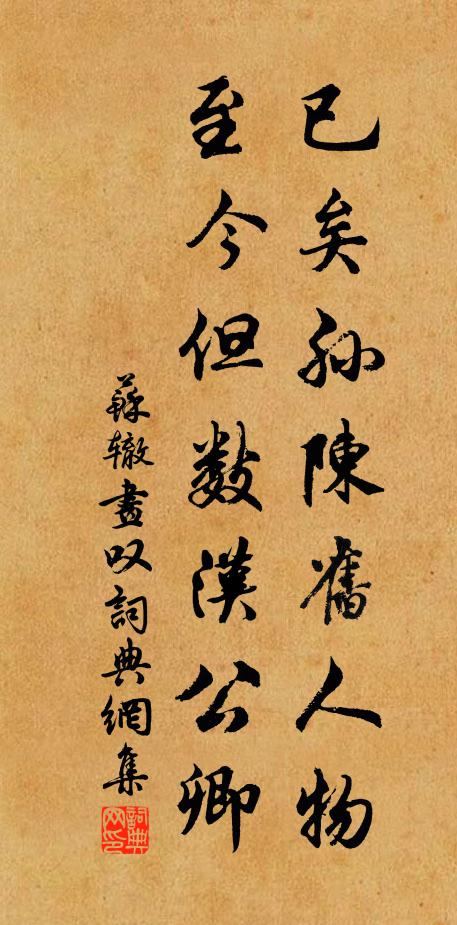 已矣孙陳舊人物
至今但数漢公卿
蘇辙畫叹詞典網集
詞典网印